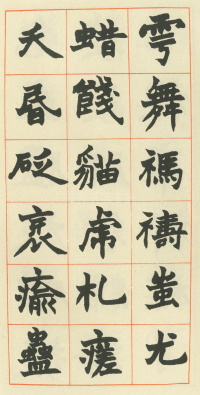 雩舞禡禱蚩尤
蜡餞貓虎札瘥
夭昬砭哀瘉蠱